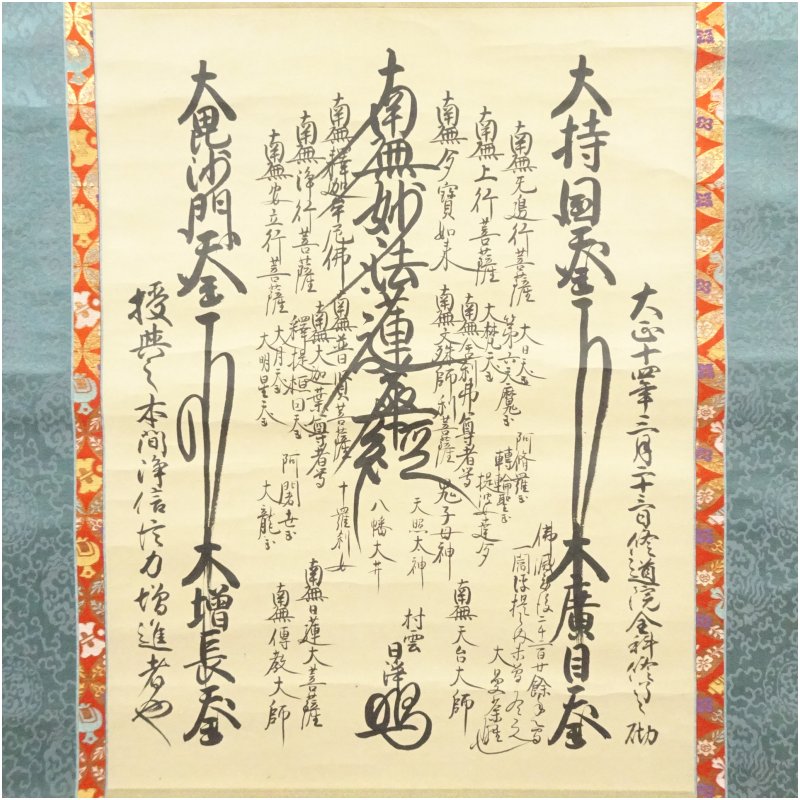 大正十四年三月二十三日修道院全科修了之砌
大持国天王
大廣目天王
南無无邊行菩薩
大日天王
第六天魔王
阿修羅王
轉輪聖王
佛滅度後二千二百廿餘年之間
一閻浮提之内未曽有之
大曼荼羅也
南無上行菩薩
大梵天王
南無舎利弗尊者等
提婆達多
南無多寳如来
南無文殊師利菩薩
鬼子母神
南無天台大師
天照太神
南無妙法蓮華經
村雲
日淨
八幡大井
南無釋迦牟尼佛
南無普賢菩薩
十羅刹女
南無日蓮大菩薩
南無浄行菩薩
南無大迦葉尊者等
釋提桓因天王
阿闍世王
南無傳教大師
南無安立行菩薩
大月天王
大明星天王
大龍王
大毘沙門天王
大增長天王
授與之本間浄信信力増進者也